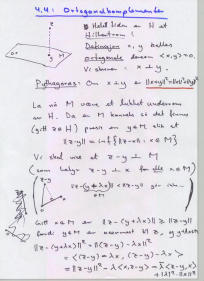 4.4: Ortogonalkomplementer
Hele tiden er H et
Hilbertrom!
Definisjon x, y kalles
ortogonale dersom <x,y> = 0.
Vi skriver x ⊥ y.
Pythagoras: Om x ⊥ y er ||x+y||² = ||x||² + ||y||²
La nå M være et lukket underrom
av H. Da er M konveks så det finnes
(gitt z ∈ H) presis en y ∈ M slik at
||z-y|| = inf{||z-x|| : x ∈ M}
Vi skal vise at z-y ⊥ M
(som betyr z-y ⊥ x for alle x ∈ M)
Gitt x ∈ M er ||z-(y+λx)|| ≥ ||z-y||
fordi y ∈ M er nærmest til z, og
||z-(y+λx)||² = ||(z-y)-λx||²
= <(z-y)-λx, (z-y)-λx>
= ||z-y||² - λ<x,z-y> - λ̄<z-y,x>
+ |λ|² ||x||²